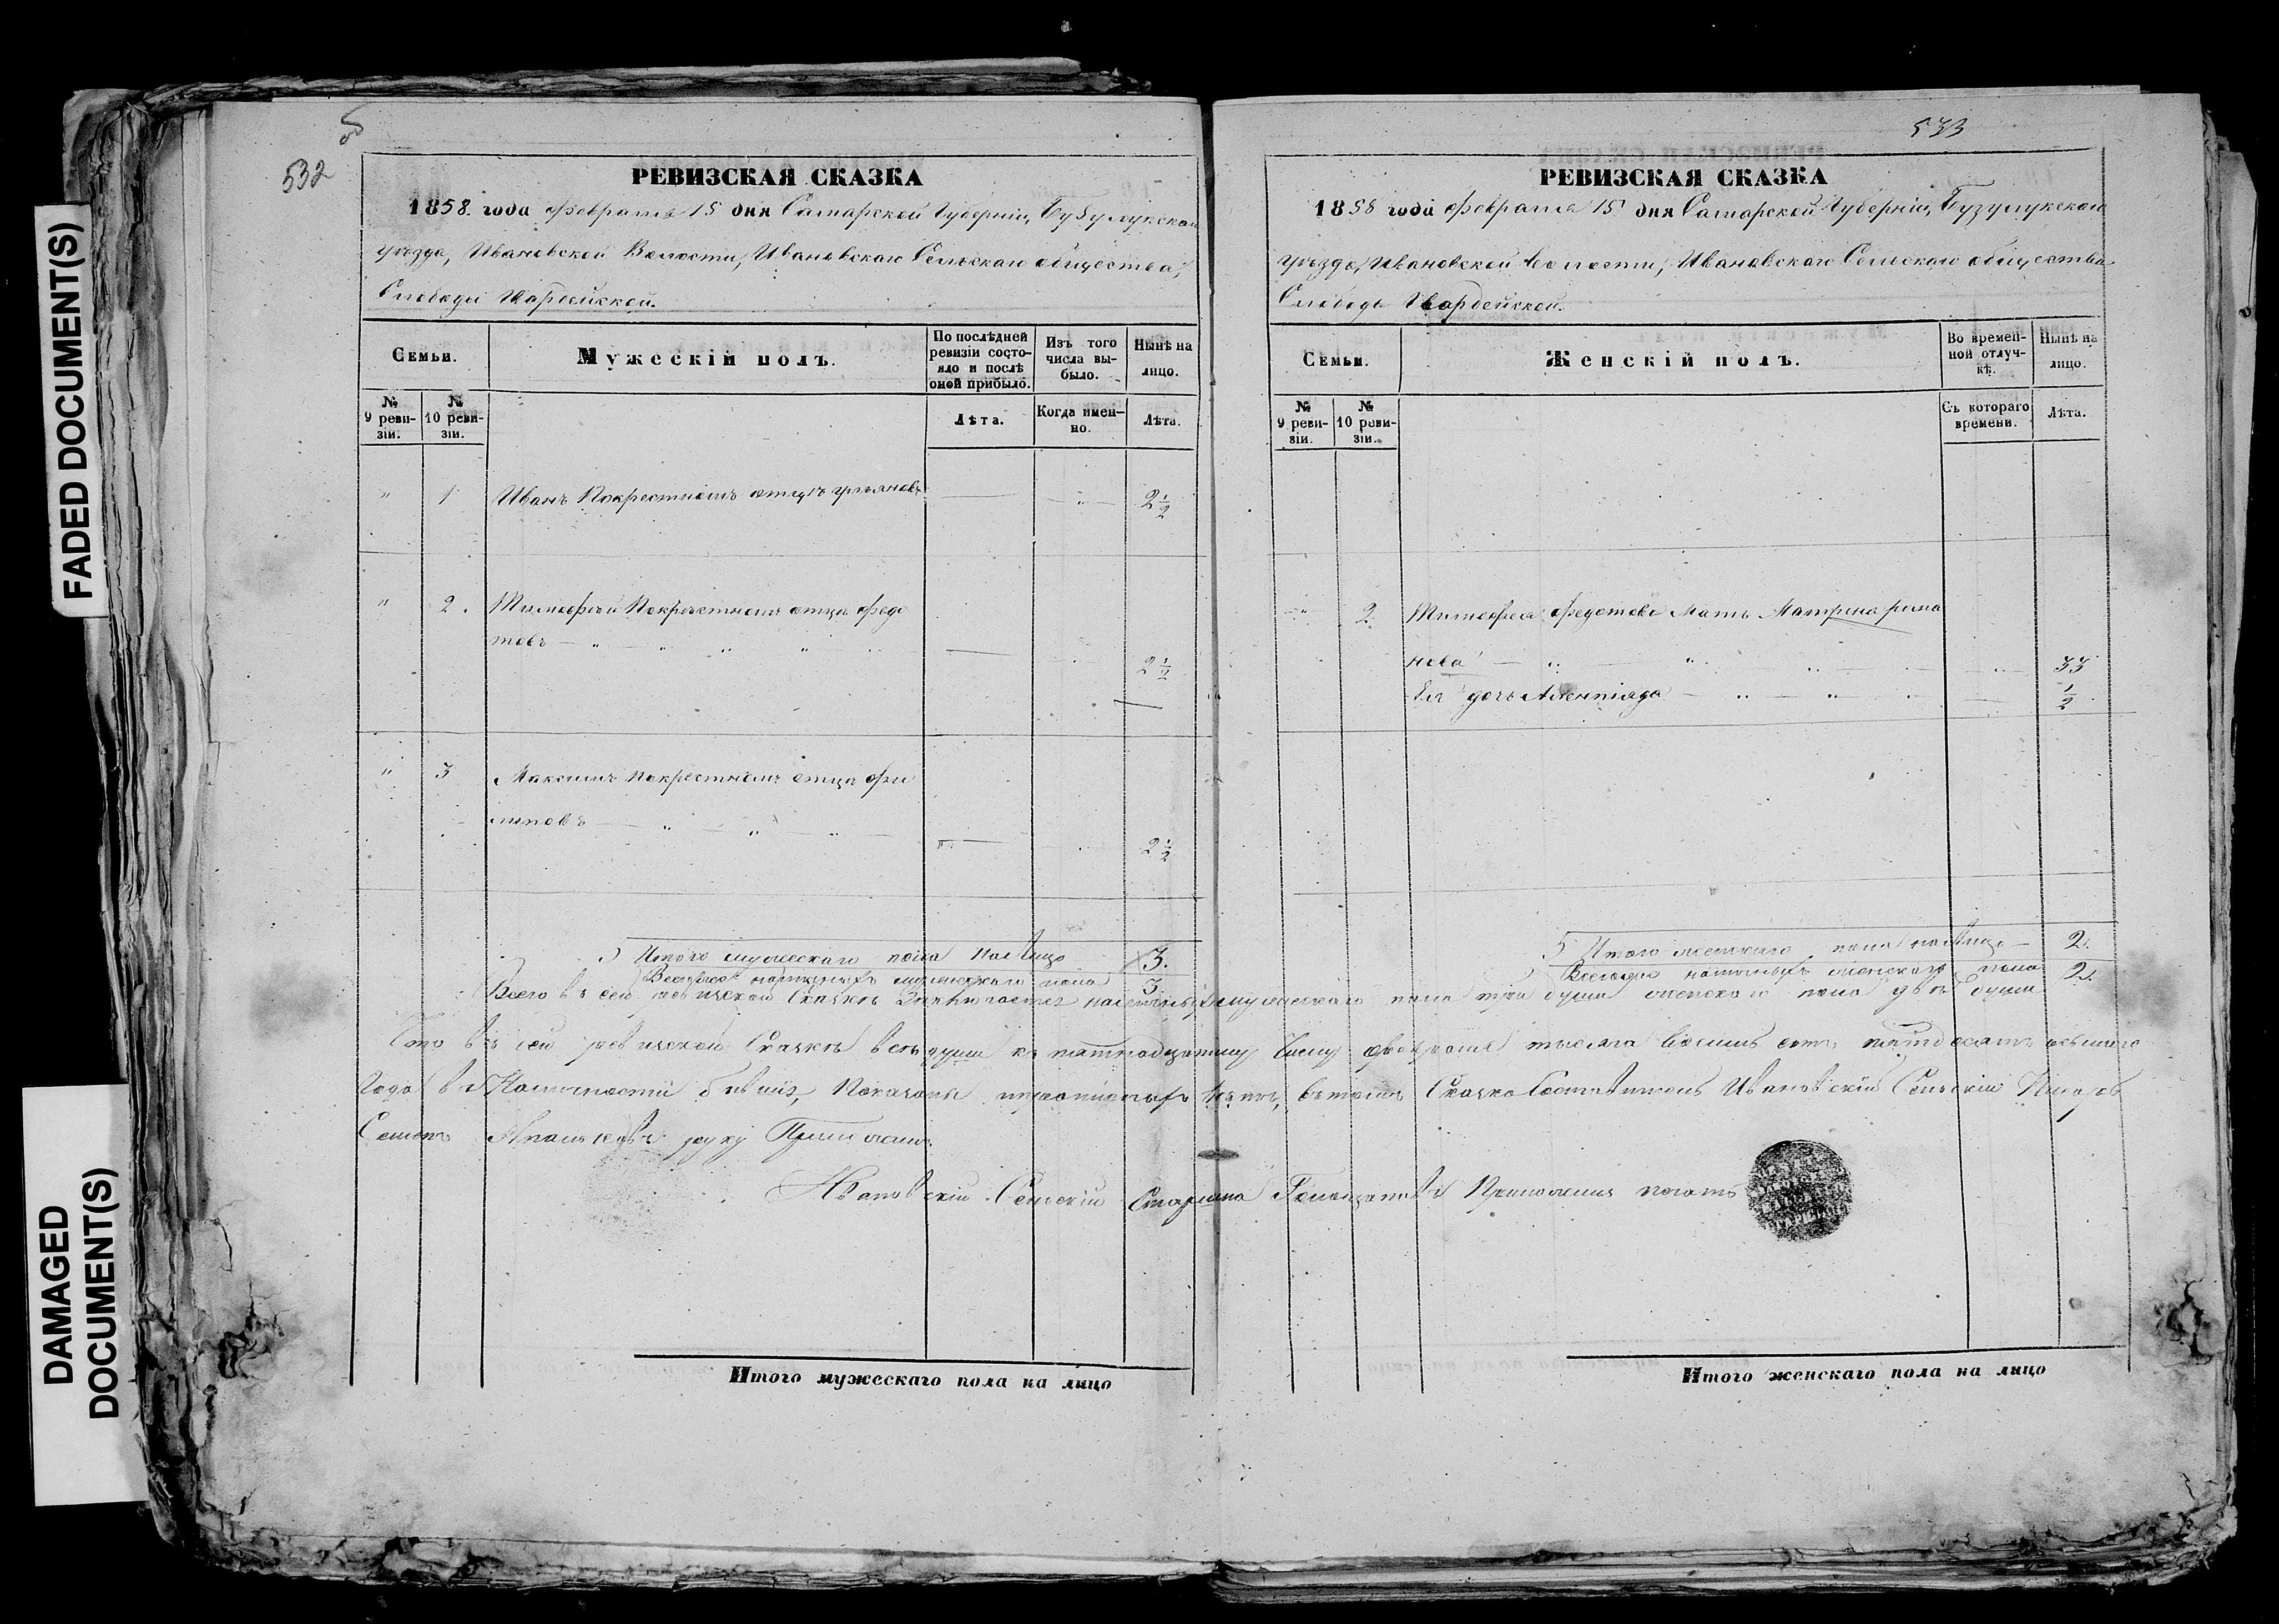 FADED DOCUMENT(S)
DAMAGED
DOCUMENT(S)
532
РЕВИЗСКАЯ СКАЗКА
1858. года февраля 15 дня Самарской Губерніи, Бузулукскаго
уѣзда, Ивановской Волости, Ивановскаго Сельскаго общества,
Слободы
Семьи.
Мужескій полъ.
По послѣдней ревизіи состояло и послѣ оной прибыло.
Изъ того числа выбыло.
Нынѣ на лицо.
№ 9 ревизіи.
№ 10 ревизіи.
Лѣта.
Когда именно.
Лѣта.
" 1 Иванъ Покрестному отцу Ульяновъ — " — 2 1/2
" 2. Тимофей Покрестному отцу Федо
товъ — " — " " " 2 1/2
" 3 Максимъ Покрестному отцу Фи
липовъ — " — " — " — 2 1/2
Итого мужескаго пола на Лицо 3.
Всего наличныхъ мужескаго пола 3.
533
РЕВИЗСКАЯ СКАЗКА
1858 года февраля 15 дня Самарской Губерніи, Бузулукскаго
уѣзда, Ивановской волости, Ивановскаго Сельскаго общества
Слободы
Семьи.
Женскій полъ.
Во временной отлучкѣ.
Нынѣ на лицо.
№ 9 ревизіи.
№ 10 ревизіи.
Съ котораго времени.
Лѣта.
" 2. Тимофея Федотова Мать Матрена рома
нова — " — " 33
Ея дочь — " — " 1/2
Итого женскаго пола на Лицо — 2.
наличныхъ женскаго пола 2.
Всего въ сей ревизской Сказкѣ наличныхъ мужескаго пола три души женскаго пола двѣ души
Что въ сей ревизской Сказкѣ всѣ души къ пятнадцатому Числу февраля тысяча восемь сотъ пятдесятъ осьмаго
Года въ Наличности бывшіе, Показаны и прописныхъ нѣтъ, въ томъ Сказко Составитель Ивановскій Сельскій Писарь
Семенъ руку Приложилъ.
Ивановскій Сельскій Старшина Приложилъ печать
Итого мужескаго пола на лицо
Итого женскаго пола на лицо